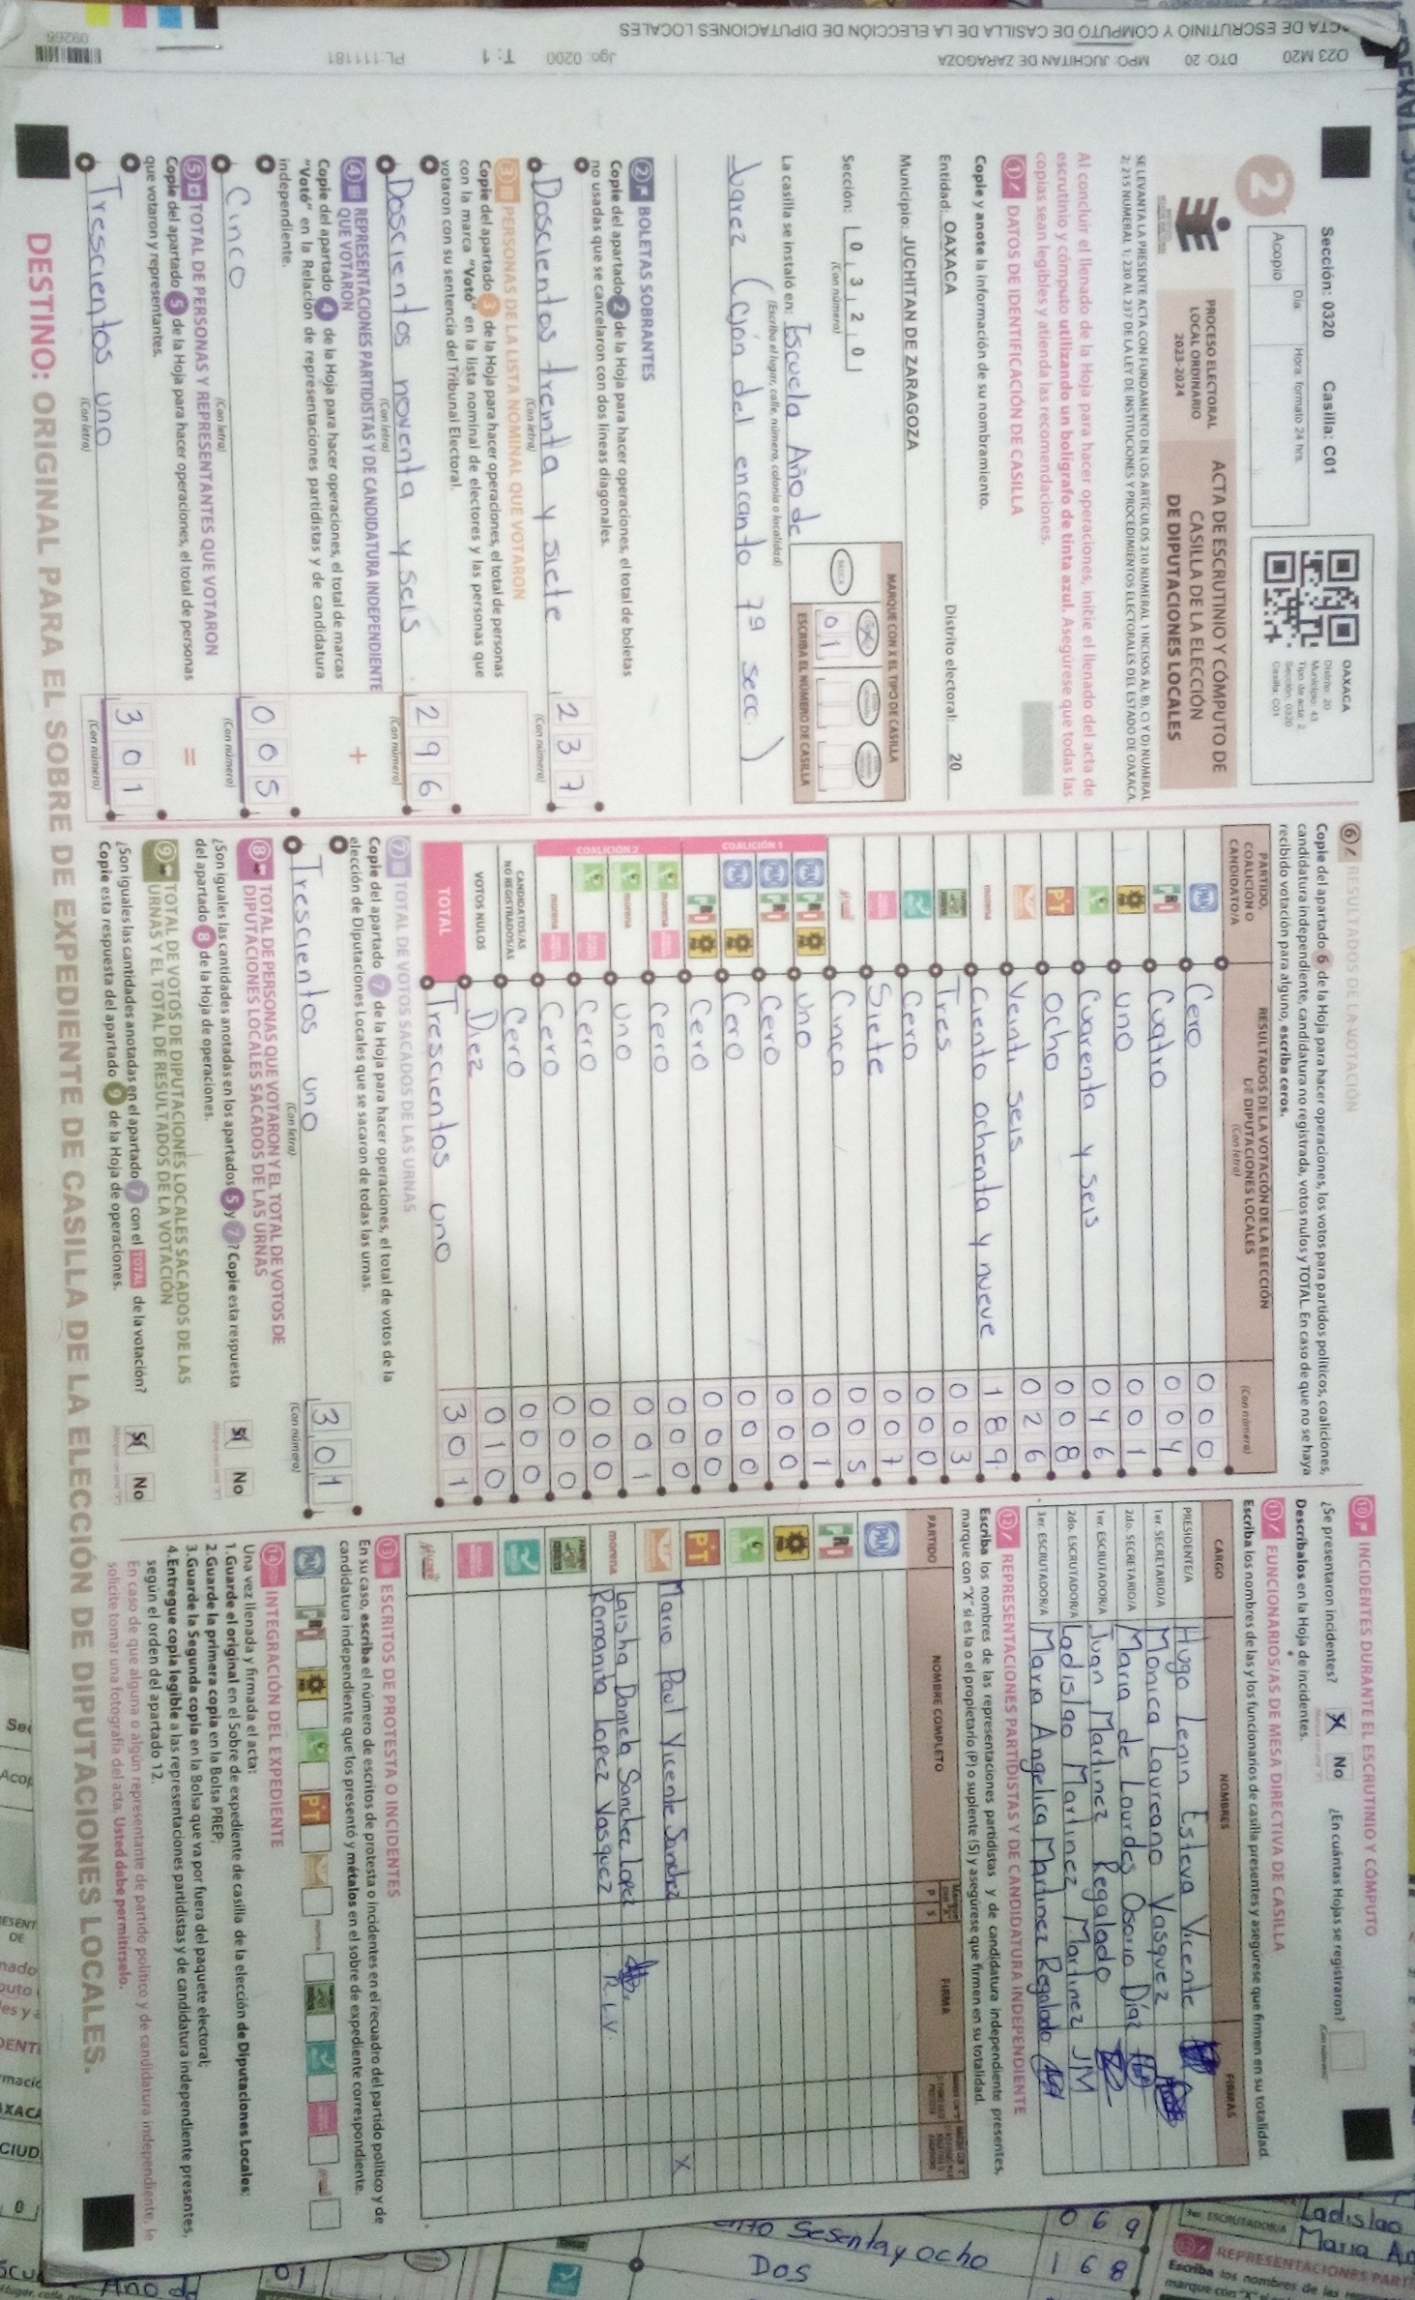 Sección: 0320 Casilla: C01
Acopio
Día Hora: formato 24 hrs.
OAXACA
Distrito: 20
Municipio: 43
Tipo de acta: 2
Sección: 0320
Casilla: C01
2
PROCESO ELECTORAL
LOCAL ORDINARIO
2023-2024
ACTA DE ESCRUTINIO Y CÓMPUTO DE
CASILLA DE LA ELECCIÓN
DE DIPUTACIONES LOCALES
SE LEVANTA LA PRESENTE ACTA CON FUNDAMENTO EN LOS ARTÍCULOS 210 NUMERAL 1 INCISOS A), B), C) Y D) NUMERAL
2; 215 NUMERAL 1; 230 AL 237 DE LA LEY DE INSTITUCIONES Y PROCEDIMIENTOS ELECTORALES DEL ESTADO DE OAXACA.
Al concluir el llenado de la Hoja para hacer operaciones, inicie el llenado del acta de
escrutinio y cómputo utilizando un bolígrafo de tinta azul. Asegúrese que todas las
copias sean legibles y atienda las recomendaciones.
1 DATOS DE IDENTIFICACIÓN DE CASILLA
Copie y anote la información de su nombramiento.
Entidad: OAXACA Distrito electoral: 20
Municipio: JUCHITAN DE ZARAGOZA
Sección: 0 3 2 0
(Con número)
MARQUE CON X EL TIPO DE CASILLA
01
ESCRIBA EL NÚMERO DE CASILLA
La casilla se instaló en: Escuela Año de
(Escriba el lugar, calle, número, colonia o localidad)
Juarez (cjón del encanto 79 secc.)
2 BOLETAS SOBRANTES
Copie del apartado 2 de la Hoja para hacer operaciones, el total de boletas
no usadas que se cancelaron con dos líneas diagonales.
Doscientos treinta y siete 237
(Con letra) (Con número)
3 PERSONAS DE LA LISTA NOMINAL QUE VOTARON
Copie del apartado 3 de la Hoja para hacer operaciones, el total de personas
con la marca "Votó" en la lista nominal de electores y las personas que
votaron con su sentencia del Tribunal Electoral.
Doscientos noventa y seis 296
(Con letra) (Con número)
4 REPRESENTACIONES PARTIDISTAS Y DE CANDIDATURA INDEPENDIENTE
QUE VOTARON +
Copie del apartado 4 de la Hoja para hacer operaciones, el total de marcas
"Votó" en la Relación de representaciones partidistas y de candidatura
independiente.
Cinco 005
(Con letra) (Con número)
5 TOTAL DE PERSONAS Y REPRESENTANTES QUE VOTARON
Copie del apartado 5 de la Hoja para hacer operaciones, el total de personas =
que votaron y representantes.
Trescientos uno 301
(Con letra) (Con número)
6 RESULTADOS DE LA VOTACIÓN
Copie del apartado 6 de la Hoja para hacer operaciones, los votos para partidos políticos, coaliciones,
candidatura independiente, candidatura no registrada, votos nulos y TOTAL. En caso de que no se haya
recibido votación para alguno, escriba ceros.
PARTIDO,
COALICIÓN O
CANDIDATO/A
RESULTADOS DE LA VOTACIÓN DE LA ELECCIÓN
DE DIPUTACIONES LOCALES
(Con letra) (Con número)
PAN Cero 000
PRI Cuatro 004
uno 001
Cuarenta y seis 046
PT ocho 008
Veinti seis 026
morena Ciento ochenta y nueve 189
Tres 003
Cero 000
Siete 007
Cinco 005
COALICIÓN 1
PAN PRI uno 001
PAN PRI Cero 000
PAN Cero 000
PRI Cero 000
COALICIÓN 2
morena Cero 000
morena uno 001
Cero 000
morena Cero 000
CANDIDATOS/AS
NO REGISTRADOS/AS Cero 000
VOTOS NULOS Diez 010
TOTAL Trescientos uno 301
7 TOTAL DE VOTOS SACADOS DE LAS URNAS
Copie del apartado 7 de la Hoja para hacer operaciones, el total de votos de la
elección de Diputaciones Locales que se sacaron de todas las urnas.
Trescientos uno 301
(Con letra) (Con número)
8 TOTAL DE PERSONAS QUE VOTARON Y EL TOTAL DE VOTOS DE
DIPUTACIONES LOCALES SACADOS DE LAS URNAS
¿Son iguales las cantidades anotadas en los apartados 5 y 7? Copie esta respuesta
del apartado 8 de la Hoja de operaciones. Sí No
9 TOTAL DE VOTOS DE DIPUTACIONES LOCALES SACADOS DE LAS
URNAS Y EL TOTAL DE RESULTADOS DE LA VOTACIÓN
¿Son iguales las cantidades anotadas en el apartado 7 con el TOTAL de la votación?
Copie esta respuesta del apartado 9 de la Hoja de operaciones. Sí No
10 INCIDENTES DURANTE EL ESCRUTINIO Y CÓMPUTO
¿Se presentaron incidentes? No ¿En cuántas Hojas se registraron?
Descríbalos en la Hoja de incidentes.
11 FUNCIONARIOS/AS DE MESA DIRECTIVA DE CASILLA
Escriba los nombres de las y los funcionarios de casilla presentes y asegúrese que firmen en su totalidad.
CARGO NOMBRES FIRMAS
PRESIDENTE/A Hugo Lenin Esteva Vicente
1er. SECRETARIO/A Monica Laureano Vasquez
2do. SECRETARIO/A Maria de Lourdes Osorio Díaz
1er. ESCRUTADOR/A Juan Martinez Regalado
2do. ESCRUTADOR/A Ladislao Martinez Martinez JM
3er. ESCRUTADOR/A Maria Angelica Martinez Regalado
12 REPRESENTACIONES PARTIDISTAS Y DE CANDIDATURA INDEPENDIENTE
Escriba los nombres de las representaciones partidistas y de candidatura independiente presentes,
marque con "X" si es la o el propietario (P) o suplente (S) y asegúrese que firmen en su totalidad.
PARTIDO NOMBRE COMPLETO P S FIRMA
PAN
PRI
PT
Mario Paul Vicente Sanchez X
morena Laisha Daniela Sanchez Lopez
Romanita Lopez Vasquez R L V.
13 ESCRITOS DE PROTESTA O INCIDENTES
En su caso, escriba el número de escritos de protesta o incidentes en el recuadro del partido político y de
candidatura independiente que los presentó y métalos en el sobre de expediente correspondiente.
PAN PRI PT morena
14 INTEGRACIÓN DEL EXPEDIENTE
Una vez llenada y firmada el acta:
1. Guarde el original en el Sobre de expediente de casilla de la elección de Diputaciones Locales;
2. Guarde la primera copia en la Bolsa PREP;
3. Guarde la Segunda copia en la Bolsa que va por fuera del paquete electoral;
4. Entregue copia legible a las representaciones partidistas y de candidatura independiente presentes,
según el orden del apartado 12.
En caso de que alguna o algún representante de partido político y de candidatura independiente, le
solicite tomar una fotografía del acta, Usted debe permitírselo.
DESTINO: ORIGINAL PARA EL SOBRE DE EXPEDIENTE DE CASILLA DE LA ELECCIÓN DE DIPUTACIONES LOCALES.
ACTA DE ESCRUTINIO Y COMPUTO DE CASILLA DE LA ELECCIÓN DE DIPUTACIONES LOCALES
O23 M20 DTO: 20 MPO: JUCHITAN DE ZARAGOZA Jgo: 0200 T: 1 PL:111181
09266
Ladislao
Maria
069
168
Sesenta y ocho
Dos
REPRESENTACIONES PARTI
Escriba los nombres de las
marque con "X"
Año de
01